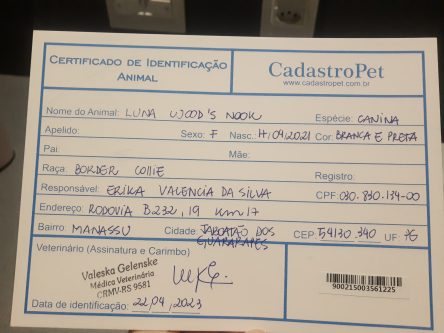 CERTIFICADO DE IDENTIFICAÇÃO
ANIMAL
CadastroPet
www.cadastropet.com.br
Nome do Animal: LUNA WOOD'S NOOK Espécie: CANINA
Apelido: Sexo: F Nasc.: 14/04/2021 Cor: BRANCA E PRETA
Pai: Mãe:
Raça: BORDER COLLIE Registro:
Responsável: ERIKA VALENCIA DA SILVA CPF: 030.830.134-00
Endereço: RODOVIA B.232, 19 Km 17
Bairro: MANASSU Cidade: JABOATÃO DOS GUARARAPES CEP: 54130.340 UF:
Veterinário (Assinatura e Carimbo)
Valeska Gelenske
Médico Veterinário
CRMV-RS 9581
900215003561225
Data de identificação: 22/04/2023